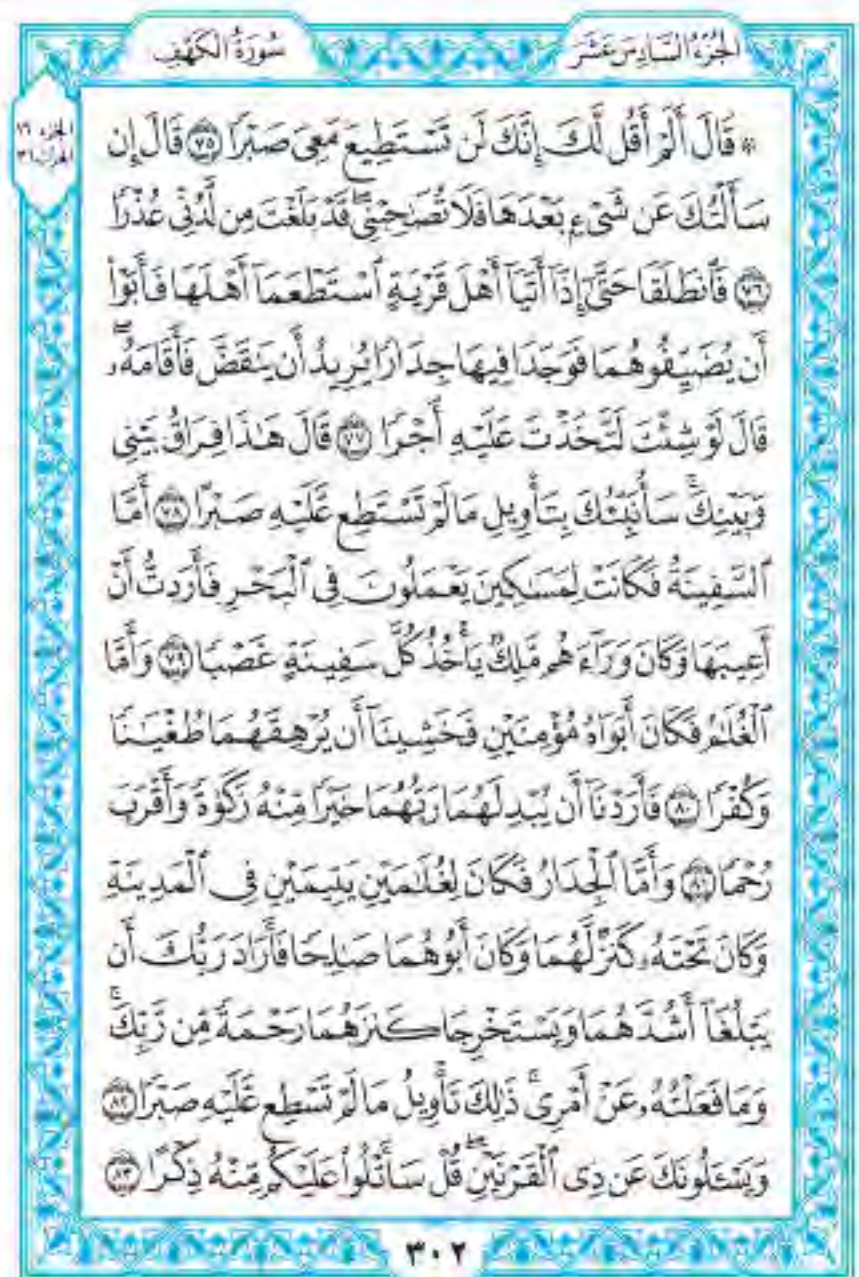 الجزء السادس عشر
سورة الكهف
الجزء ١٦
الحزب ٣١
۞ قَالَ أَلَمْ أَقُل لَّكَ إِنَّكَ لَن تَسْتَطِيعَ مَعِيَ صَبْرًا ٧٥ قَالَ إِن
سَأَلْتُكَ عَن شَيْءٍ بَعْدَهَا فَلَا تُصَٰحِبْنِي ۖ قَدْ بَلَغْتَ مِن لَّدُنِّي عُذْرًا
٧٦ فَٱنطَلَقَا حَتَّىٰٓ إِذَآ أَتَيَآ أَهْلَ قَرْيَةٍ ٱسْتَطْعَمَآ أَهْلَهَا فَأَبَوْا۟
أَن يُضَيِّفُوهُمَا فَوَجَدَا فِيهَا جِدَارًا يُرِيدُ أَن يَنقَضَّ فَأَقَامَهُۥ ۖ
قَالَ لَوْ شِئْتَ لَتَّخَذْتَ عَلَيْهِ أَجْرًا ٧٧ قَالَ هَٰذَا فِرَاقُ بَيْنِي
وَبَيْنِكَ ۚ سَأُنَبِّئُكَ بِتَأْوِيلِ مَا لَمْ تَسْتَطِع عَّلَيْهِ صَبْرًا ٧٨ أَمَّا
ٱلسَّفِينَةُ فَكَانَتْ لِمَسَٰكِينَ يَعْمَلُونَ فِي ٱلْبَحْرِ فَأَرَدتُّ أَنْ
أَعِيبَهَا وَكَانَ وَرَآءَهُم مَّلِكٌ يَأْخُذُ كُلَّ سَفِينَةٍ غَصْبًا ٧٩ وَأَمَّا
ٱلْغُلَٰمُ فَكَانَ أَبَوَاهُ مُؤْمِنَيْنِ فَخَشِينَآ أَن يُرْهِقَهُمَا طُغْيَٰنًا
وَكُفْرًا ٨٠ فَأَرَدْنَآ أَن يُبْدِلَهُمَا رَبُّهُمَا خَيْرًا مِّنْهُ زَكَوٰةً وَأَقْرَبَ
رُحْمًا ٨١ وَأَمَّا ٱلْجِدَارُ فَكَانَ لِغُلَٰمَيْنِ يَتِيمَيْنِ فِي ٱلْمَدِينَةِ
وَكَانَ تَحْتَهُۥ كَنزٌ لَّهُمَا وَكَانَ أَبُوهُمَا صَٰلِحًا فَأَرَادَ رَبُّكَ أَن
يَبْلُغَآ أَشُدَّهُمَا وَيَسْتَخْرِجَا كَنزَهُمَا رَحْمَةً مِّن رَّبِّكَ ۚ
وَمَا فَعَلْتُهُۥ عَنْ أَمْرِي ۚ ذَٰلِكَ تَأْوِيلُ مَا لَمْ تَسْطِع عَّلَيْهِ صَبْرًا ٨٢
وَيَسْـَٔلُونَكَ عَن ذِي ٱلْقَرْنَيْنِ ۖ قُلْ سَأَتْلُوا۟ عَلَيْكُم مِّنْهُ ذِكْرًا ٨٣
٣٠٢